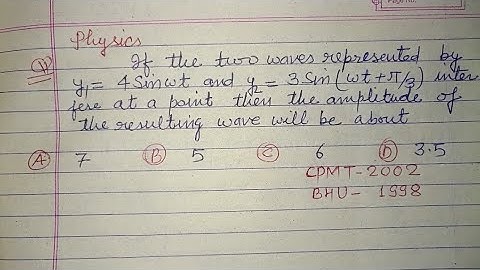 Physics
If the two waves represented by
y₁ = 4 Sin ωt and y₂ = 3 Sin (ωt + π/3) inter
fere at a point then the amplitude of
the resulting wave will be about
(A) 7 (B) 5 (C) 6 (D) 3.5
CPMT-2002
BHU- 1998